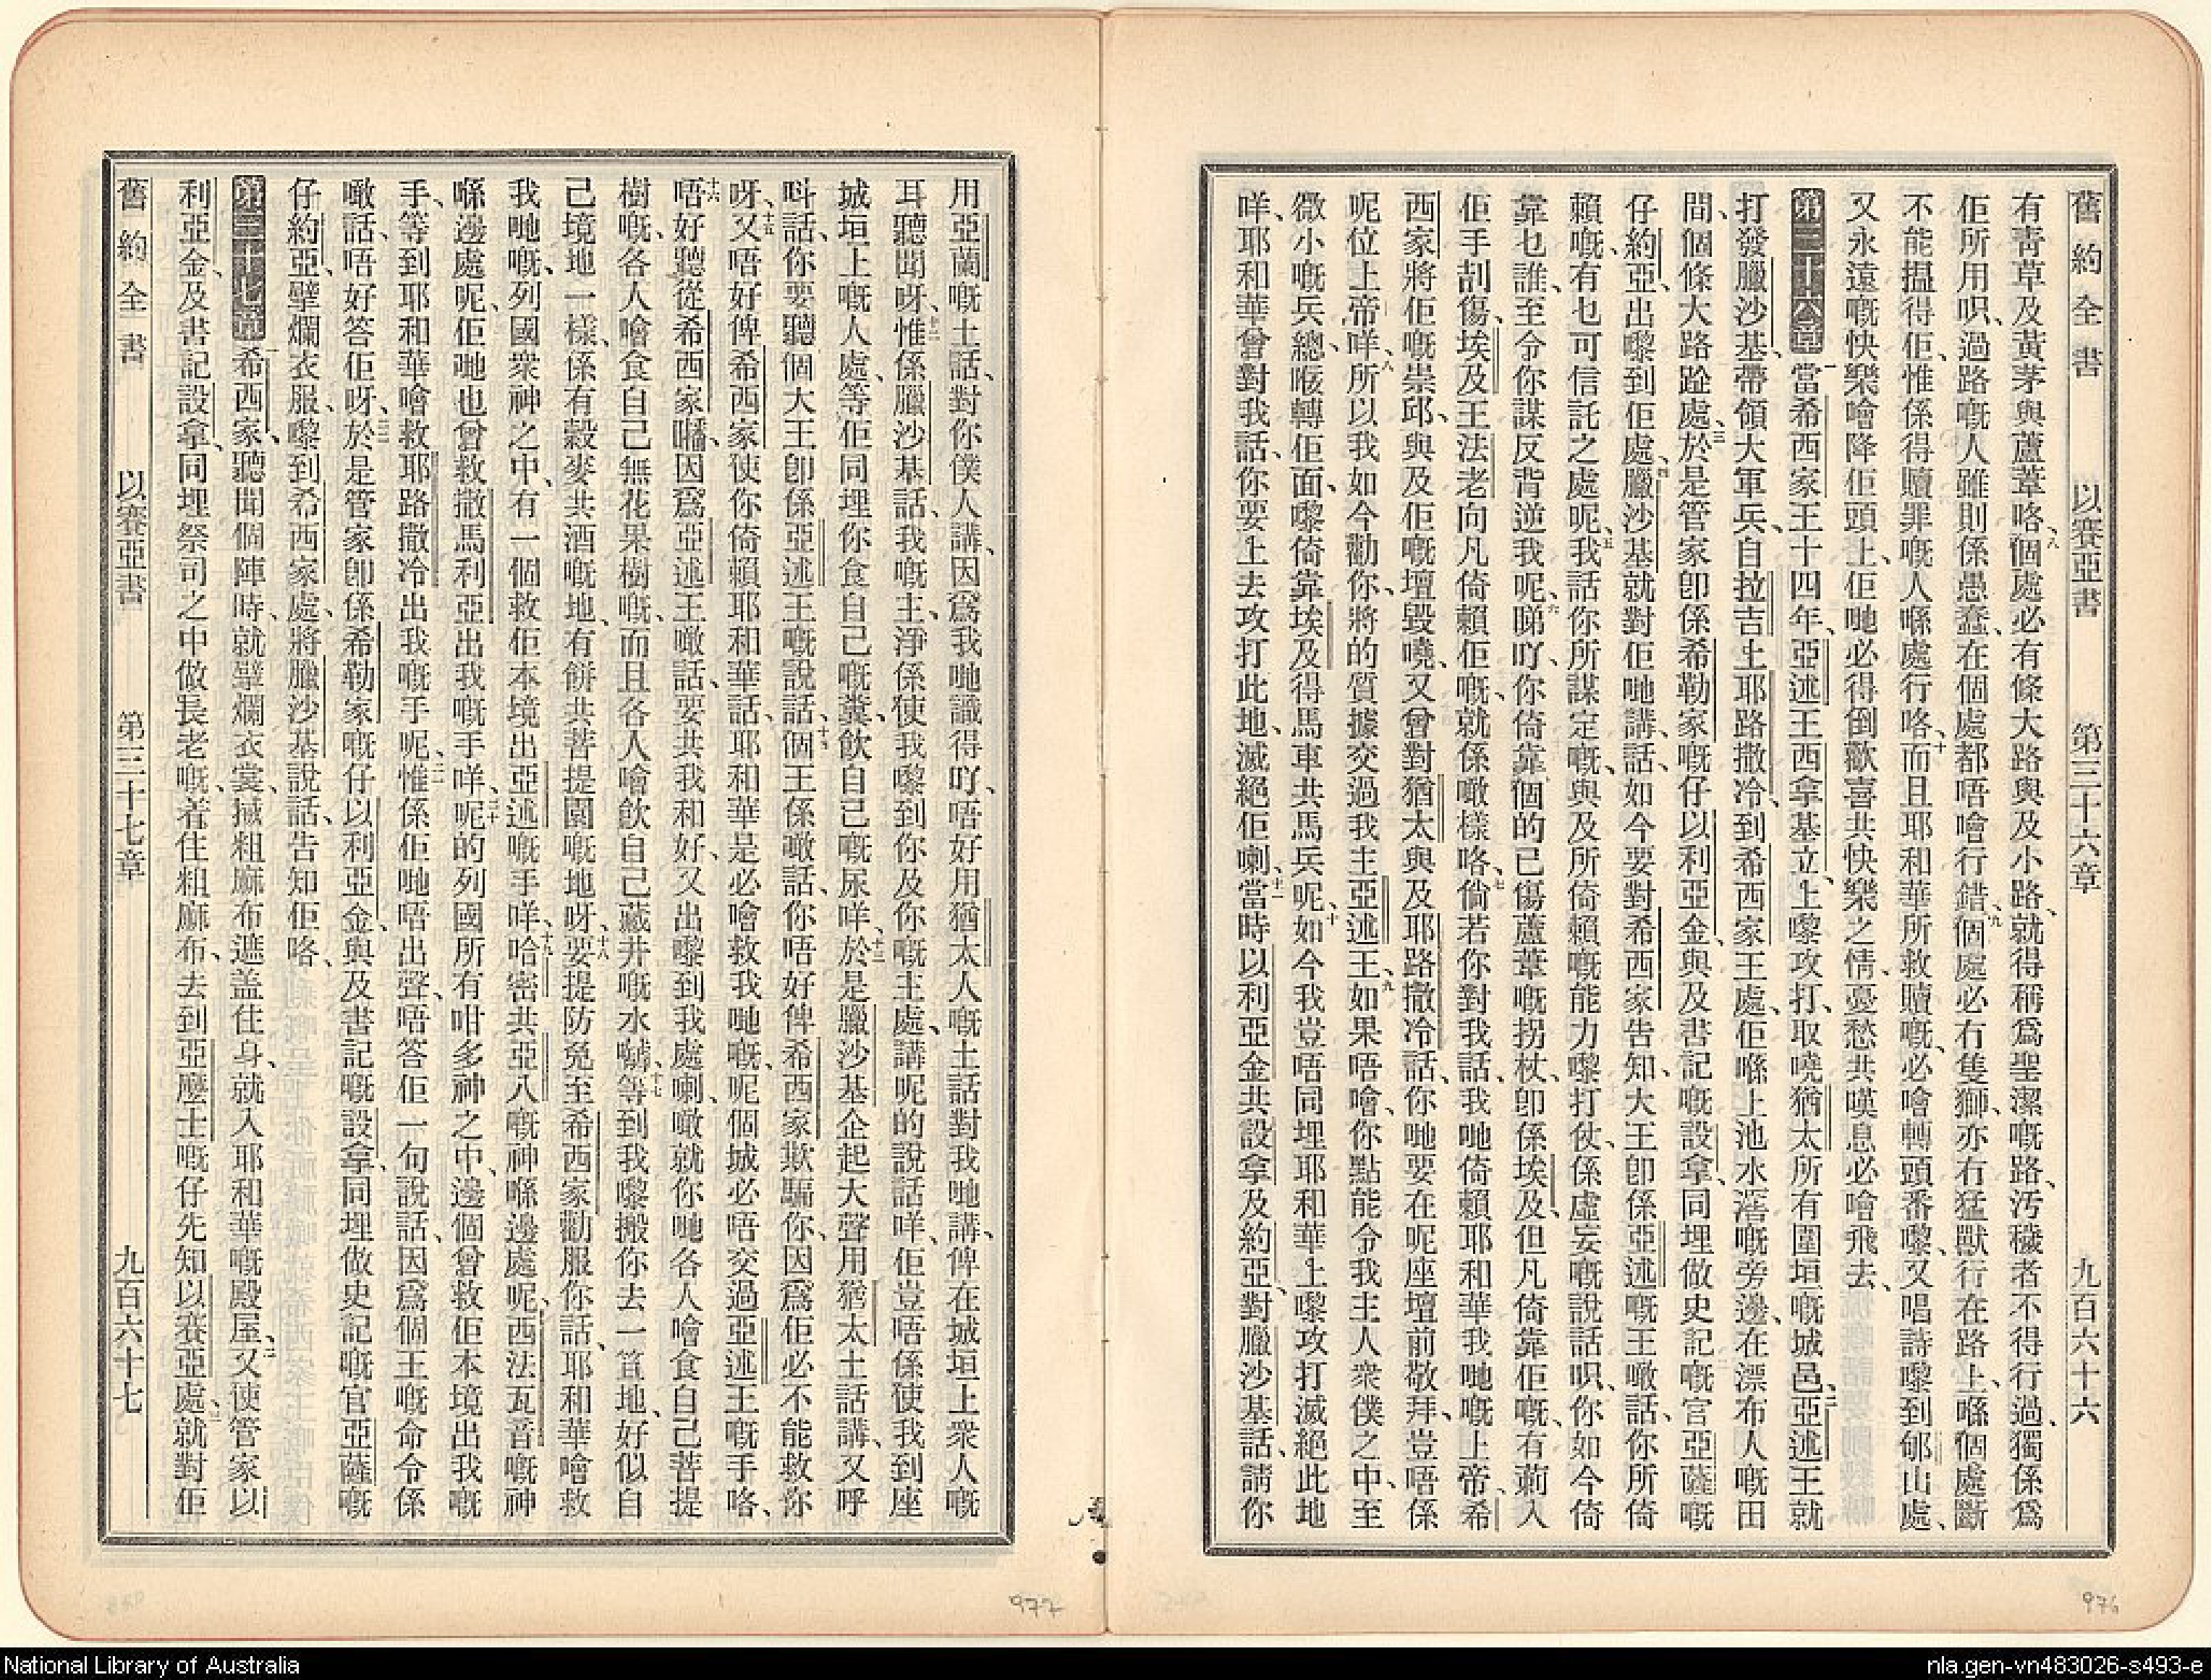 舊約全書 以賽亞書 第三十六章 九百六十六
有青草及黃茅與蘆葦咯、八個處必有條大路與及小路、就得稱爲聖潔嘅路、汚穢者不得行過、獨係爲
佢所用呮、過路嘅人雖則係愚蠢、在個處都唔噲行錯、九個處必冇隻獅、亦冇猛獸行在路上、喺個處斷
不能搵得佢、惟係得贖罪嘅人喺處行咯、十而且耶和華所救贖嘅、必噲轉頭番嚟、又唱詩嚟到郇山處、
又永遠嘅快樂噲降佢頭上、佢哋必得倒歡喜共快樂之情、憂愁共嘆息必噲飛去、
第三十六章 一當希西家王十四年、亞述王西拿基立、上嚟攻打、取嘵猶太所有圍垣嘅城邑、二亞述王就
打發臘沙基、帶領大軍兵、自拉吉上耶路撒冷、到希西家王處、佢喺上池水㴞嘅旁邊、在漂布人嘅田
間、個條大路跧處、三於是管家卽係希勒家嘅仔以利亞金、與及書記嘅設拿、同埋做史記嘅官亞薩嘅
仔約亞、出嚟到佢處、四臘沙基就對佢哋講、話、如今要對希西家告知、大王卽係亞述嘅王噉話、你所倚
賴嘅、有乜可信託之處呢、五我話你所謀定嘅、與及所倚賴嘅能力嚟打仗、係虛妄嘅說話呮、你如今倚
靠乜誰、至令你謀反背逆我呢、六睇吖、你倚靠個的已傷蘆葦嘅拐杖、卽係埃及、但凡倚靠佢嘅、有萴入
佢手剒傷、埃及王法老向凡倚賴佢嘅、就係噉樣咯、七倘若你對我話、我哋倚賴耶和華我哋嘅上帝、希
西家將佢嘅崇邱、與及佢嘅壇毀嘵、又曾對猶太與及耶路撒冷話、你哋要在呢座壇前敬拜、豈唔係
呢位上帝咩、八所以我如今勸你、將的質據交過我主亞述王、如果唔噲、你點能令我主人衆僕之中、至
微小嘅兵總、㖞轉佢面、嚟倚靠埃及得馬車共馬兵呢、十如今我豈唔同埋耶和華上嚟攻打滅絕此地
咩、耶和華曾對我話、你要上去攻打此地、滅絕佢喇、十一當時以利亞金共設拿及約亞、對臘沙基話、請你
用亞蘭嘅土話、對你僕人講、因爲我哋識得吖、唔好用猶太人嘅土話對我哋講、俾在城垣上衆人嘅
耳聽聞呀、十二惟係臘沙基話、我嘅主、淨係使我嚟到你及你嘅主處、講呢的說話咩、佢豈唔係使我到座
城垣上嘅人處、等佢同埋你食自己嘅糞、飲自己嘅尿咩、十三於是臘沙基企起大聲用猶太土話講、又呼
呌話、你要聽個大王卽係亞述王嘅說話、十四個王係噉話、你唔好俾希西家欺騙你、因爲佢必不能救你
呀、十五又唔好俾希西家使你倚賴耶和華話、耶和華是必噲救我哋嘅、呢個城必唔交過亞述王嘅手咯、
十六唔好聽從希西家囑、因爲亞述王噉話、要共我和好、又出嚟到我處喇、噉就你哋各人噲食自己菩提
樹嘅、各人噲食自己無花果樹嘅、而且各人噲飮自己藏井嘅水嚹、十七等到我嚟搬你去一笪地、好似自
己境地一樣、係有穀麥共酒嘅地、有餅共菩提園嘅地呀、十八要提防免至希西家勸服你話、耶和華噲救
我哋嘅、列國衆神之中、有一個救佢本境出亞述嘅手咩、十九哈密共亞八嘅神喺邊處呢、西法瓦音嘅神
喺邊處呢、佢哋也曾救撒馬利亞出我嘅手咩、二十呢的列國所有咁多神之中、邊個曾救佢本境出我嘅
手、等到耶和華噲救耶路撒冷出我嘅手呢、二一惟係佢哋唔出聲、唔答佢一句說話、因爲個王嘅命令係
噉話、唔好答佢呀、二二於是管家卽係希勒家嘅仔以利亞金、與及書記嘅設拿、同埋做史記嘅官亞薩嘅
仔約亞、擘爛衣服、嚟到希西家處、將臘沙基說話、告知佢咯、
第三十七章 一希西家聽聞個陣時、就擘爛衣裳、搣粗麻布遮盖住身、就入耶和華嘅殿屋、二又使管家以
利亞金、及書記設拿、同埋祭司之中做長老嘅、着住粗麻布、去到亞麽士嘅仔先知以賽亞處、三就對佢
舊約全書 以賽亞書 第三十七章 九百六十七
977
976
National Library of Australia
nla.gen-vn483026-s493-e